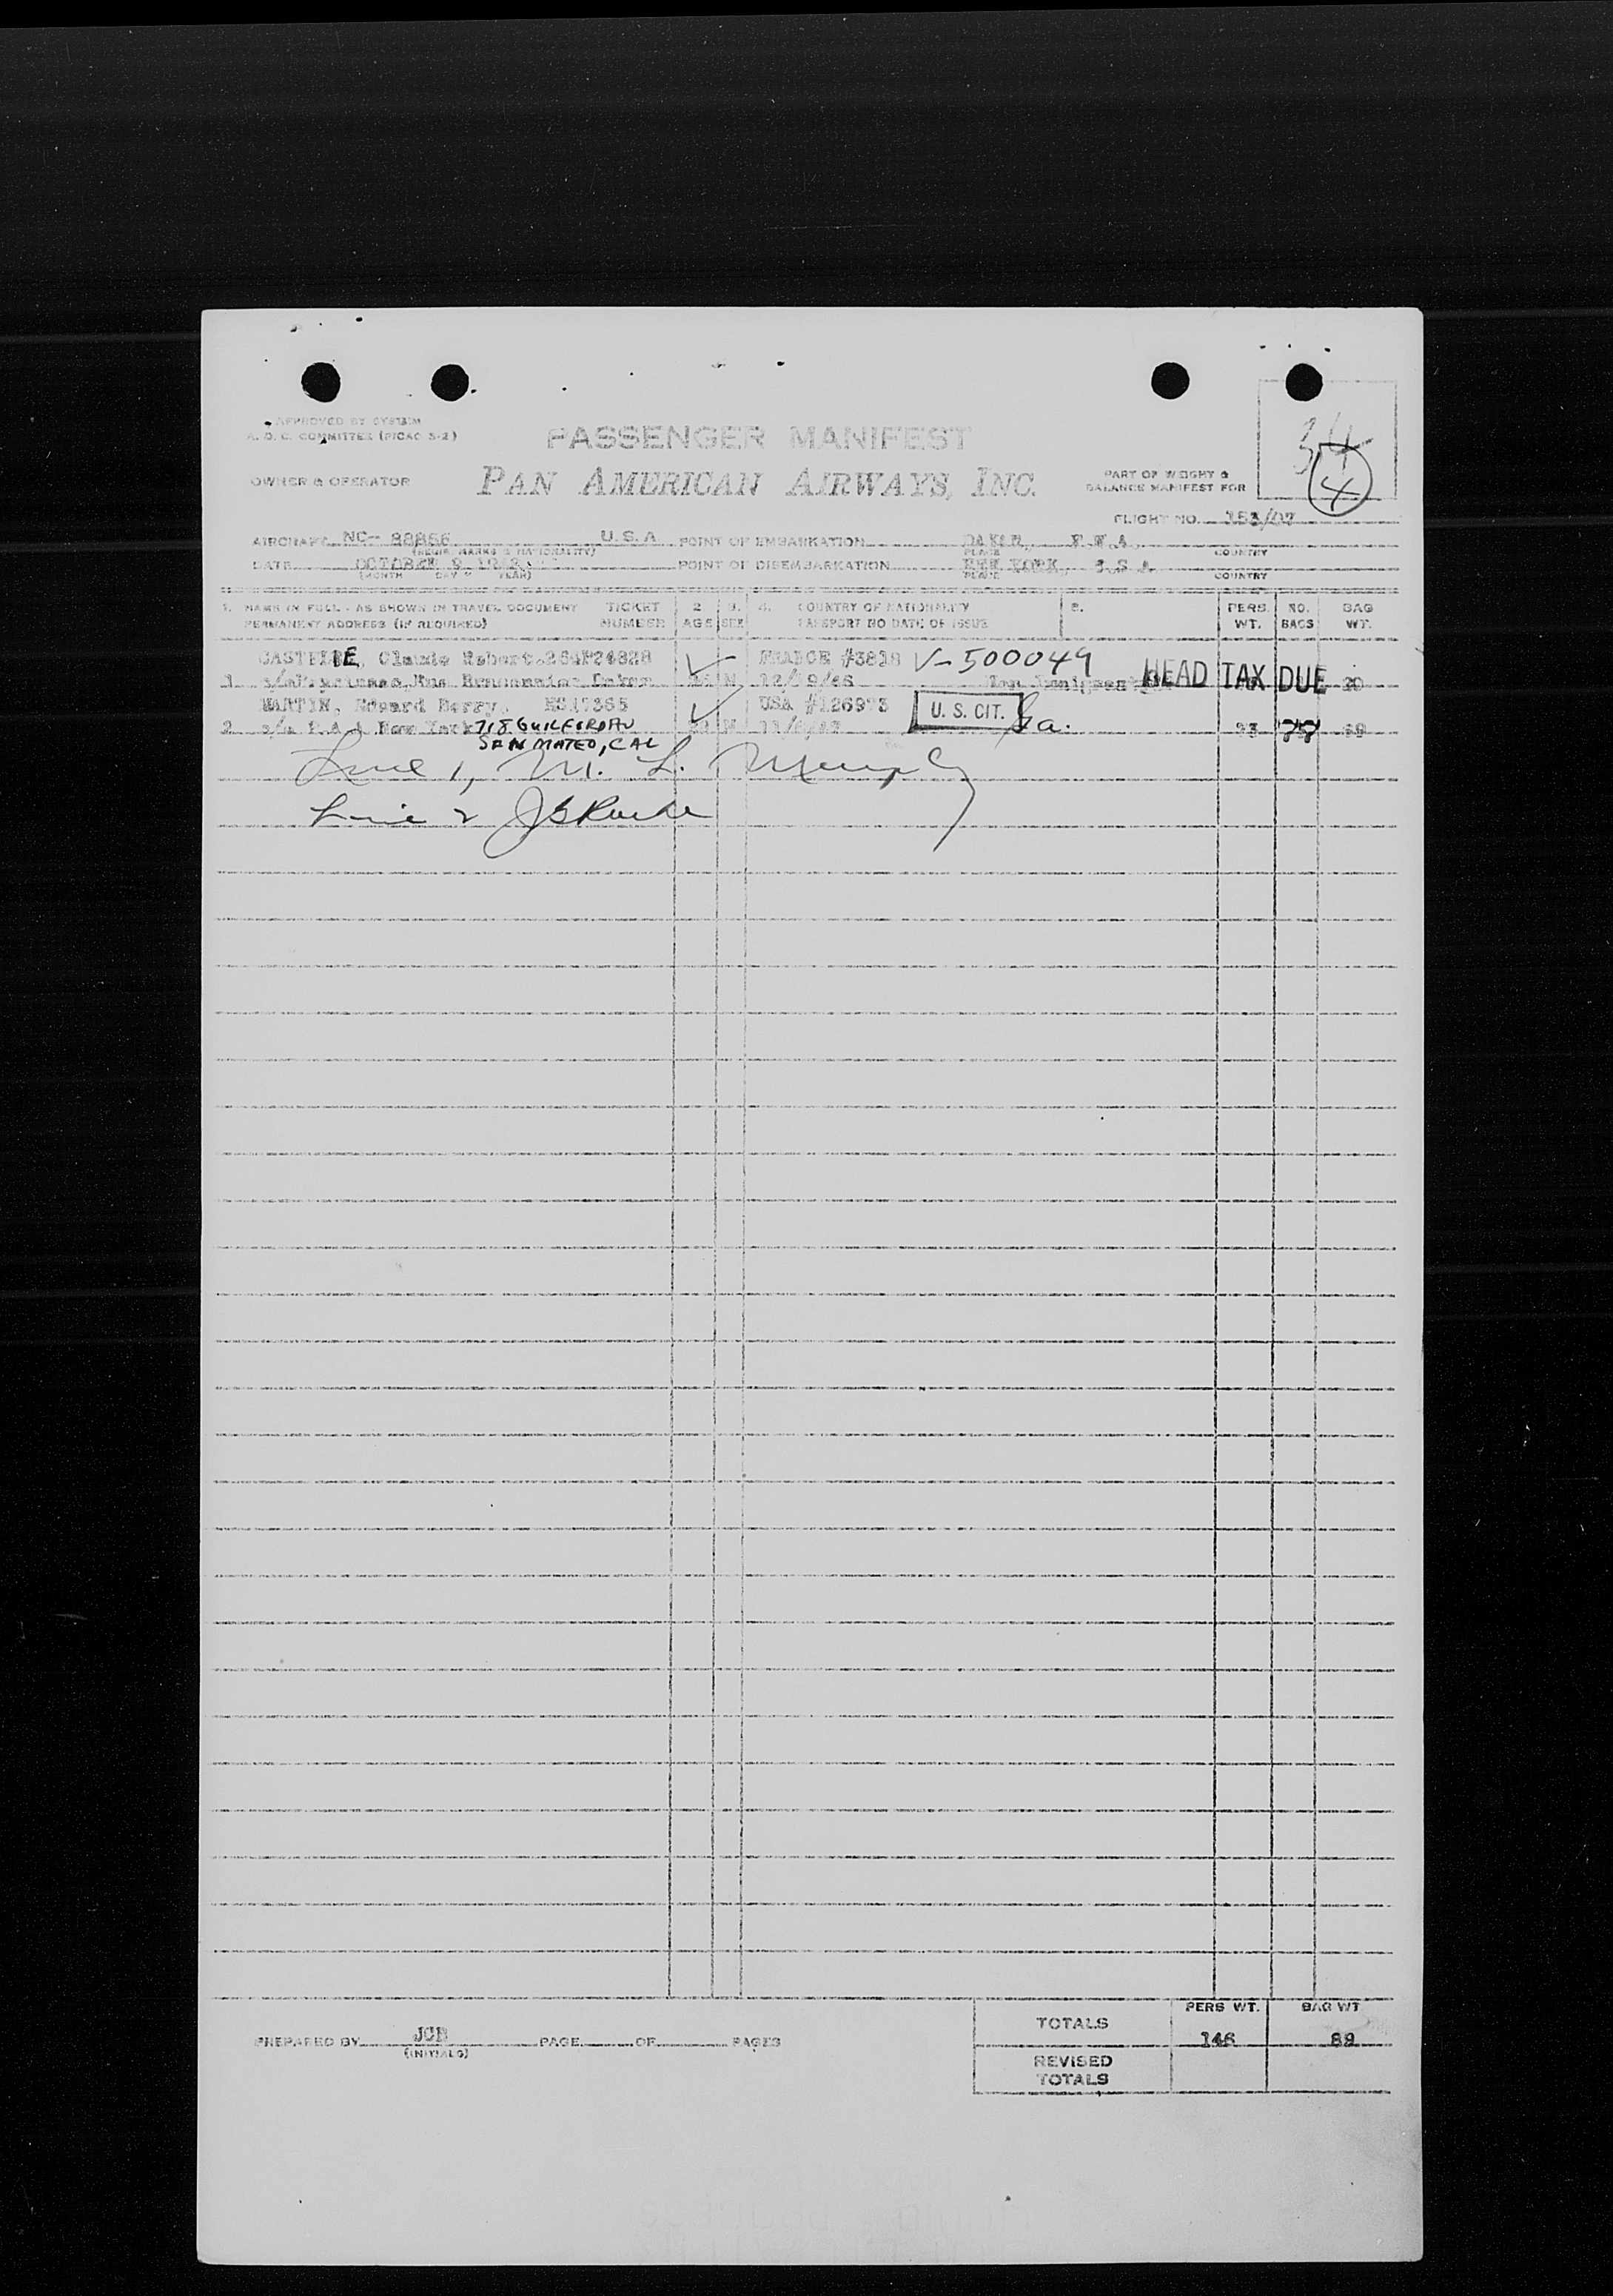 APPROVED BY SYSTEM
A. O. C. COMMITTEE (PICAO 5-2)
PASSENGER MANIFEST
34
4
OWNER & OPERATOR PAN AMERICAN AIRWAYS, INC. PART OF WEIGHT &
BALANCE MANIFEST FOR
FLIGHT NO. 153/07
AIRCRAFT NC- 88856 U.S.A. POINT OF EMBARKATION DAKAR, F.W.A.
(REGIS. MARKS & NATIONALITY) PLACE COUNTRY
DATE OCTOBER 9, POINT OF DISEMBARKATION NEW YORK, U.S.A.
(MONTH DAY YEAR) PLACE COUNTRY
1. NAME IN FULL - AS SHOWN IN TRAVEL DOCUMENT TICKET 2 3. 4. COUNTRY OF NATIONALITY 5. PERS. NO. BAG
PERMANENT ADDRESS (IF REQUIRED) NUMBER AGE SEX PASSPORT NO DATE OF ISSUE WT. BAGS WT.
Claude Robert FRANCE #3818 V-500049 HEAD TAX DUE
1. Dakar M 20
MARTIN, Edward Berry, USA #126973 U. S. CIT.
2. New York 718 GUILFORD AV M 68
SAN MATEO, CAL
Line 1, M. L. Murphy
Line 2
PERS WT. BAG WT
TOTALS 146 88
PREPARED BY JCB PAGE OF PAGES
(INITIALS)
REVISED
TOTALS